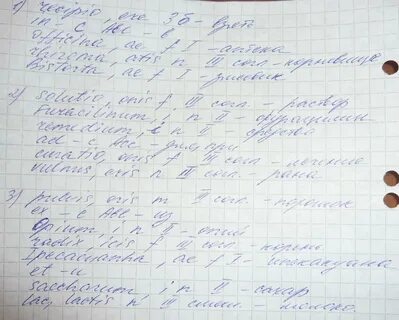 1) recipio, ere 3б - брать
in с Acc - в
officina, ae f I - аптека
rhizoma, atis n III согл. - корневище
Bistorta, ae f I - змеевик
2) solutio, onis f III согл. - раствор
Furacilinum, i n II - фурацилин
remedium, i n II - средство
ad - с Acc - для, при
curatio, onis f III согл. - лечение
vulnus, eris n III согл. - рана
3) pulvis, eris m III согл. - порошок
ex - с Abl - из
Opium, i n II - опий
radix, icis f III согл. - корень
Ipecacuanha, ae f I - ипекакуана
et - и
saccharum i n II - сахар
lac, lactis n III смеш. - молоко.